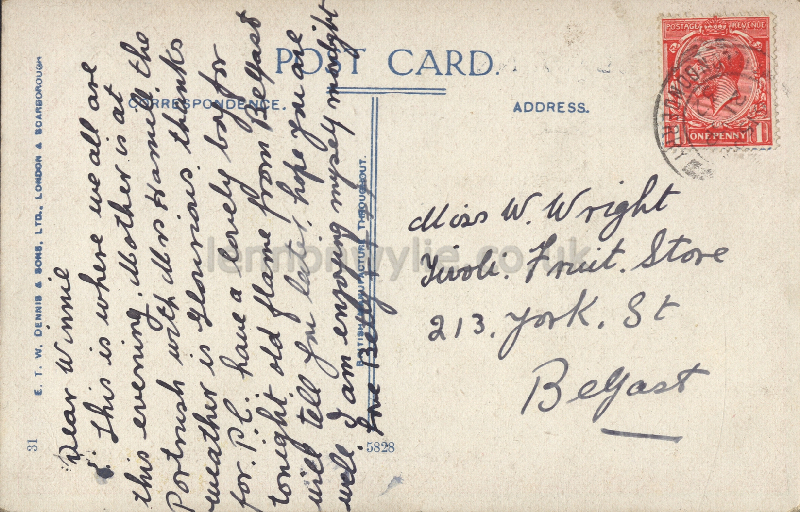 POST CARD.
CORRESPONDENCE.
ADDRESS.
Dear Winnie
This is where we all are
this evening. Mother is at
Portrush with Mrs Hamill. the
weather is glorious thanks
for P.C. have a lovely boy for
tonight old flame from Belfast
will tell you later. hope you are
well. I am enjoying myself
love Betty
Miss W. Wright
Tivoli. Fruit. Store
213. York. St
Belfast
POSTAGE REVENUE
1 ONE PENNY 1
E. T. W. DENNIS & SONS, LTD., LONDON & SCARBOROUGH
31
BRITISH MANUFACTURE THROUGHOUT.
5828
lennonwylie.co.uk